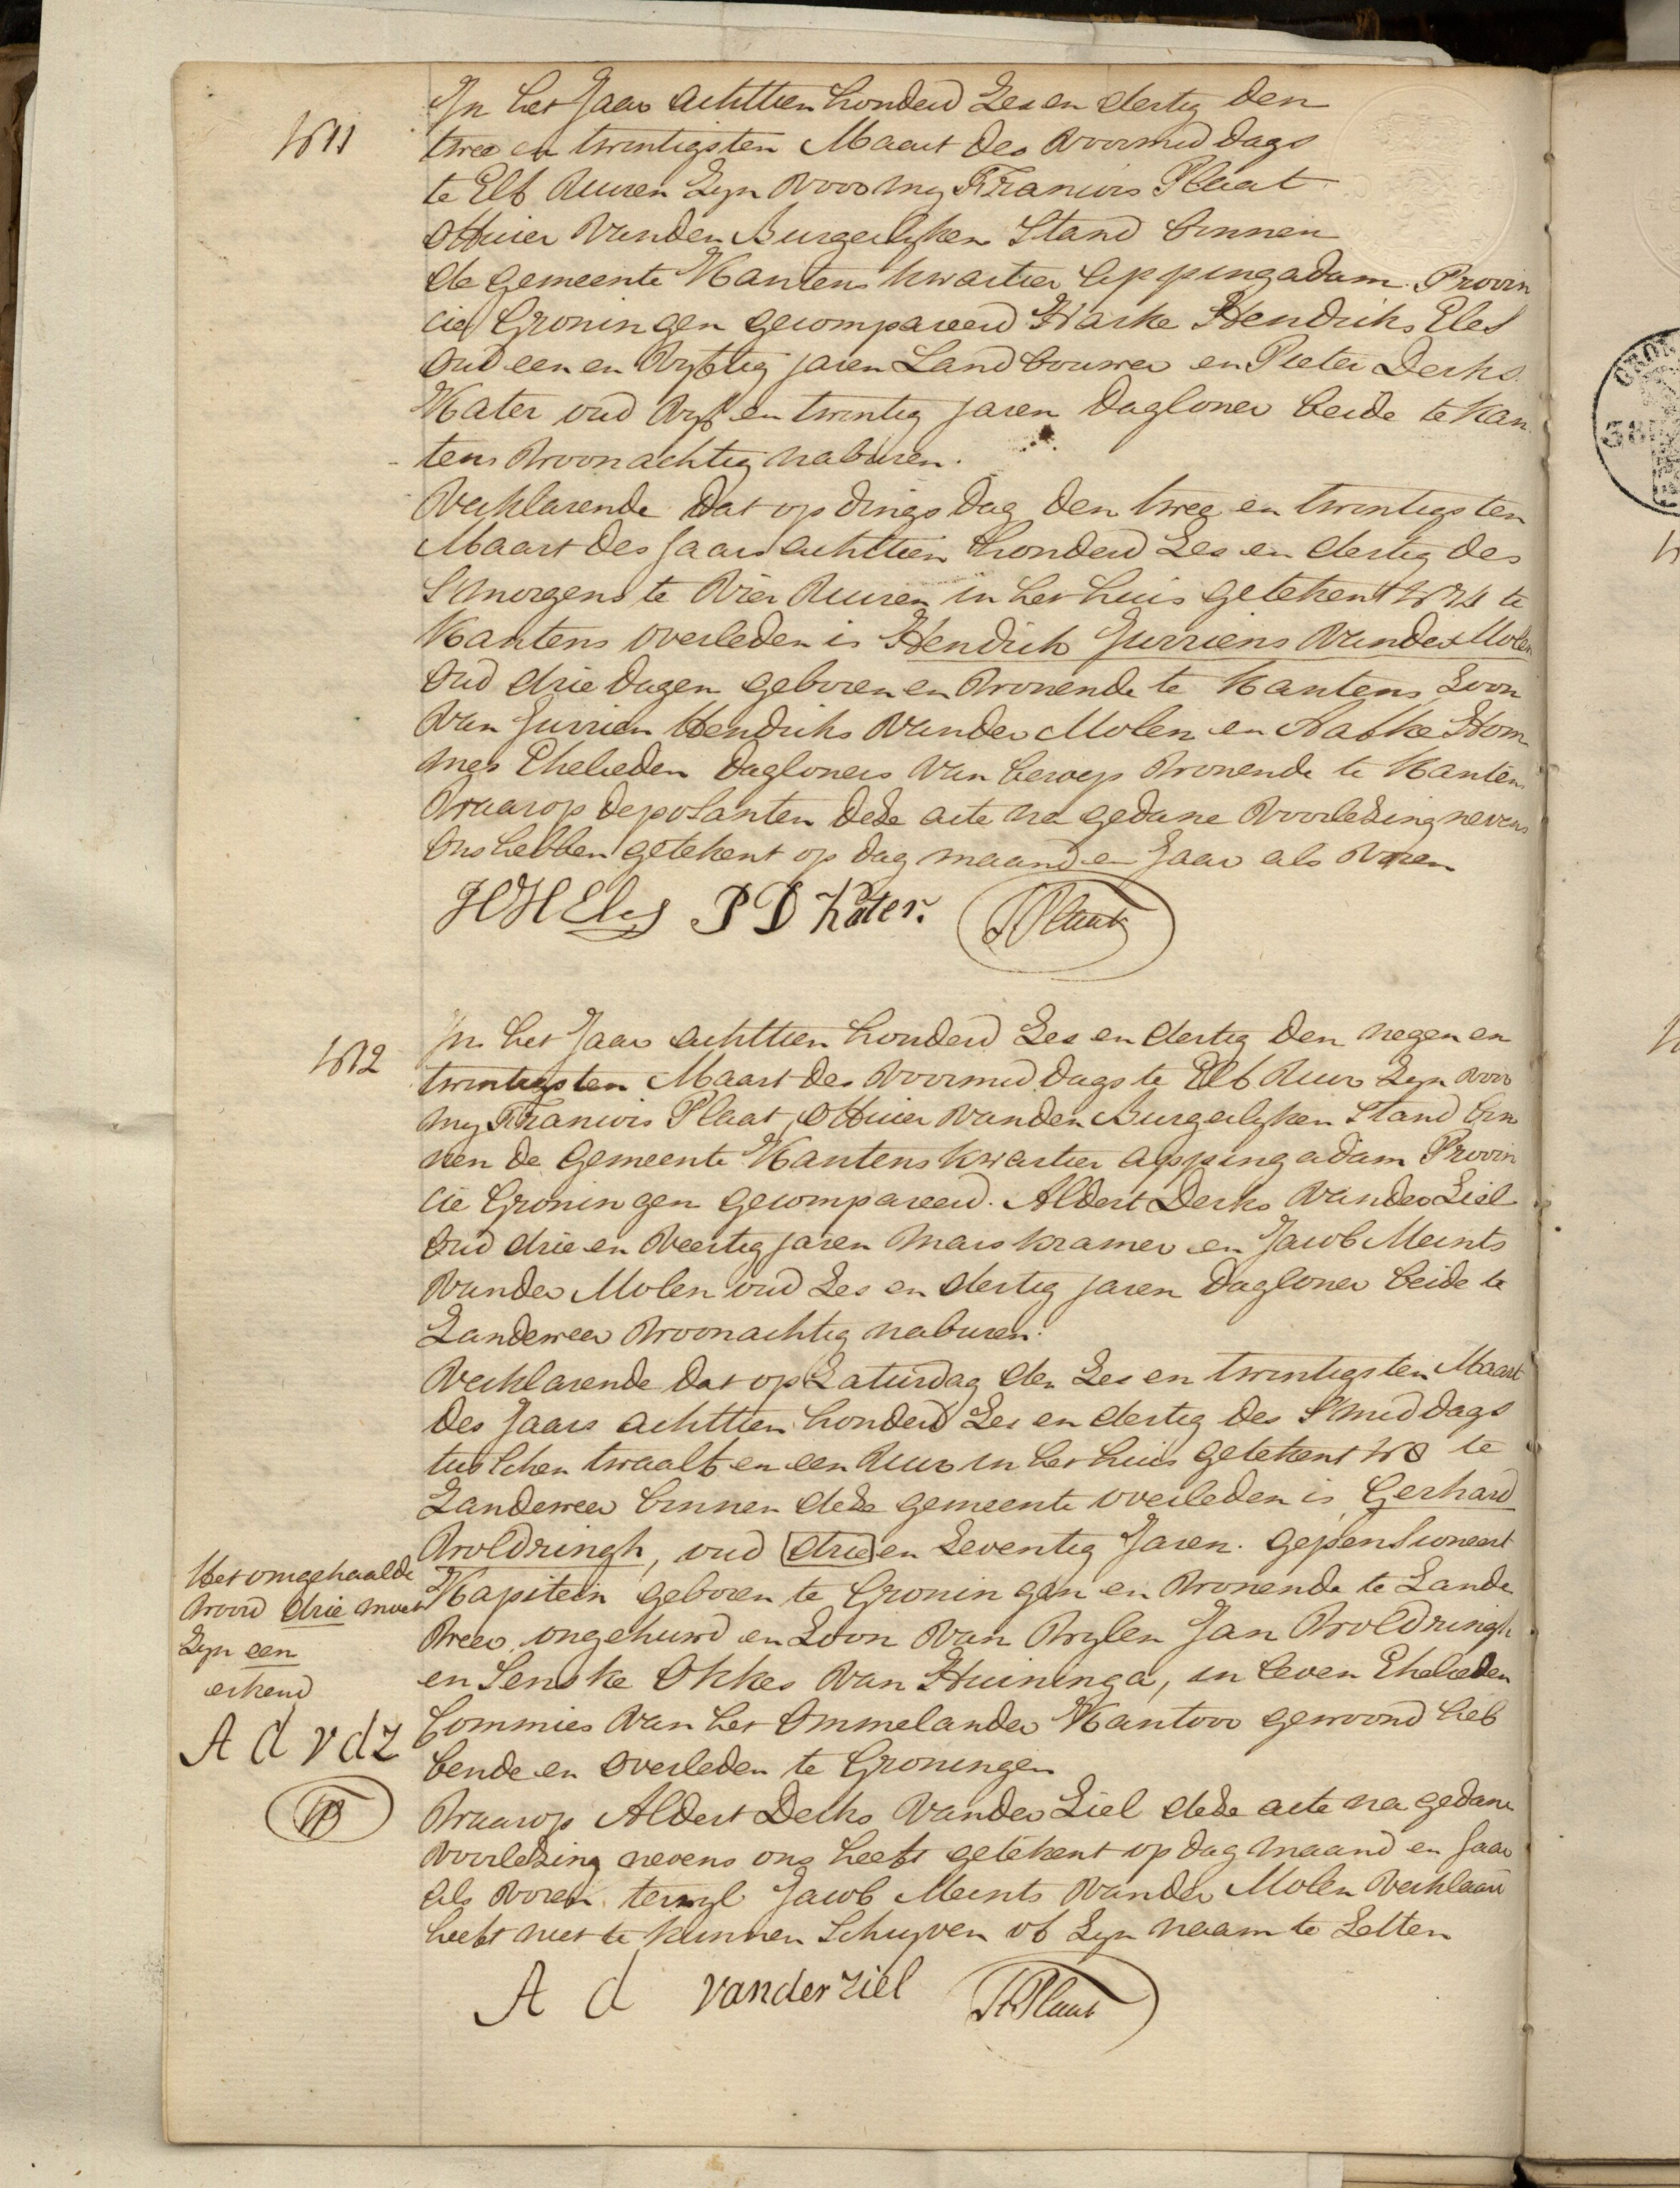 N 11
In het Jaar achttien honderd Zes en dertig den
twee en twintigsten Maart des voormiddags
te Elf Uuren Zyn voor my Francois Plaat
Officier van den Burgerlyken Stand binnen
de gemeente Kantens kwartier Appingadam Provin
cie Groningen gecompareerd Harke Hendriks Eles
oud een en vyftig jaren Landbouwer en Pieter Derks
Kater oud vyf en twintig jaren dagloner beide te Kan
tens woonachtig naburen.
Verklarende dat op dingsdag den twee en twintigsten
Maart des Jaars achttien honderd Zes en dertig des
Smorgens te vier Uuren in het huis getekent N 74 te
Kantens overleden is Hendrik Jurriens van der Molen
oud drie dagen geboren en wonende te Kantens Zoon
van Jurrien Hendriks van der Molen en Aafke Hom
mes Ehelieden dagloners van beroep wonende te Kantens
Waarop deposanten deze acte na gedane voorlezing nevens
ons hebben getekent op dag maand en Jaar als voren
H H Eles P D Kater. F Plaat
N 12
In het Jaar achttien honderd Zes en dertig den negen en
twintigsten Maart des voormiddags te Elf Uur Zyn voor
my Francois Plaat, Officier van den Burgerlyken Stand bin
nen de Gemeente Kantens kwartier Appingadam Provin
cie Groningen gecompareerd. Aldert Derks van der Ziel
oud drie en veertig jaren marskramer en Jacob Meints
van der Molen oud Zes en dertig jaren dagloner beide te
Zandeweer woonachtig naburen.
Verklarende dat op Zaturdag den Zes en twintigsten Maart
des Jaars achttien honderd Zes en dertig des Smiddags
tusschen twaalf en een Uur in het huis getekent N 8 te
Zandeweer binnen deze gemeente overleden is Gerhard
Woldringh, oud drie en Zeventig Jaren. gepensioneert
Kapitein geboren te Groningen en wonende te Zande
weer, ongehuwd en Zoon van wylen Jan Woldringh
en Senske Okkes van Huininga, in leven Ehelieden
Commies van het Ommelander Kantoor gewoond heb
bende en overleden te Groningen
Waarop Aldert Derks van der Ziel deze acte na gedane
voorlezing nevens ons heeft getekent op dag maand en Jaar
als voren terwyl Jacob Meints van der Molen verklaard
heeft niet te kunnen Schryven of Zyn naam te Zetten
A d vanderziel F Plaat
Het omgehaalde
woord drie moet
Zyn een
erkend
A d v d z
FP